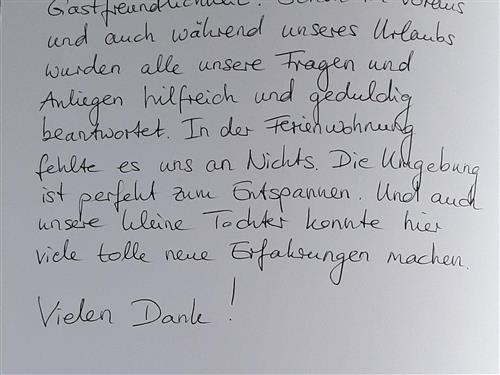 Gastfreundlichkeit! Schon im Voraus
und auch während unseres Urlaubs
wurden alle unsere Fragen und
Anliegen hilfreich und geduldig
beantwortet. In der Ferienwohnung
fehlte es uns an Nichts. Die Umgebung
ist perfekt zum Entspannen. Und auch
unsere kleine Tochter konnte hier
viele tolle neue Erfahrungen machen.
Vielen Dank!